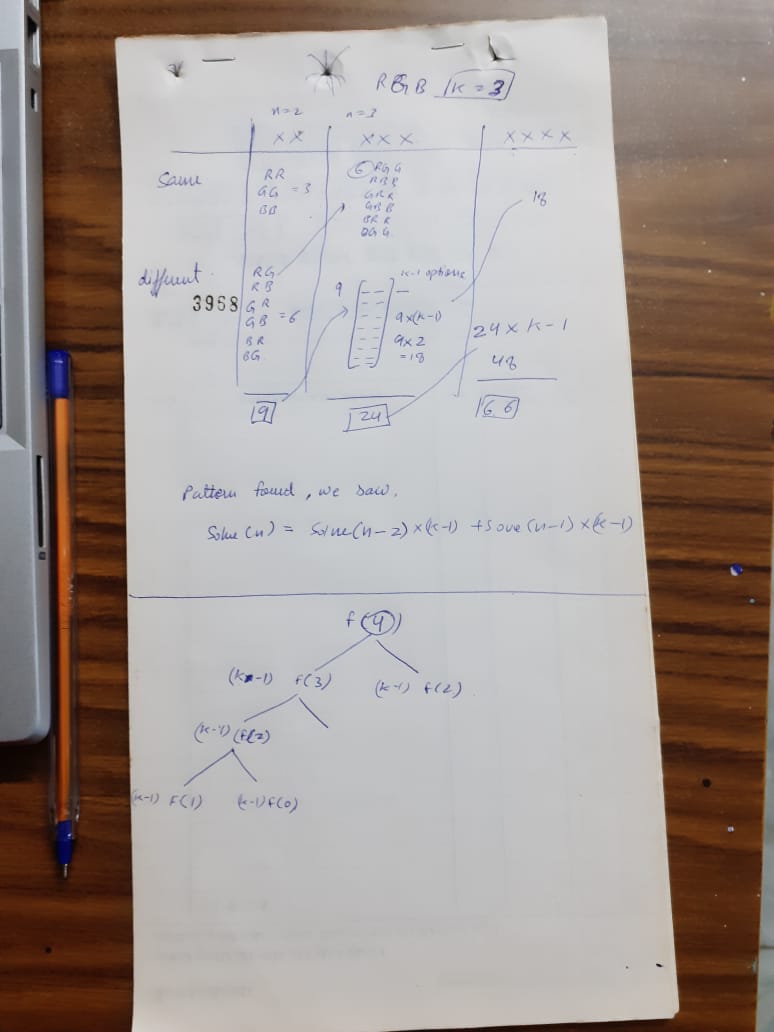 RGB K = 3
n=2 n=3
X X X X X X X X X
Same
RR
GG = 3
BB
6 RGG
RBB
GRR
GBB
BRR
BGG
18
different
3968
RG
RB
GR
GB = 6
BR
BG
k-1 options
9
9x(k-1)
9x2
=18
24 x k-1
48
9
24
66
Pattern found, we saw,
Solve (n) = Solve(n-2) x(k-1) + Solve (n-1) x(k-1)
f(4)
(k-1) f(3) (k-1) f(2)
(k-1) f(2)
(k-1) f(1) (k-1) f(0)